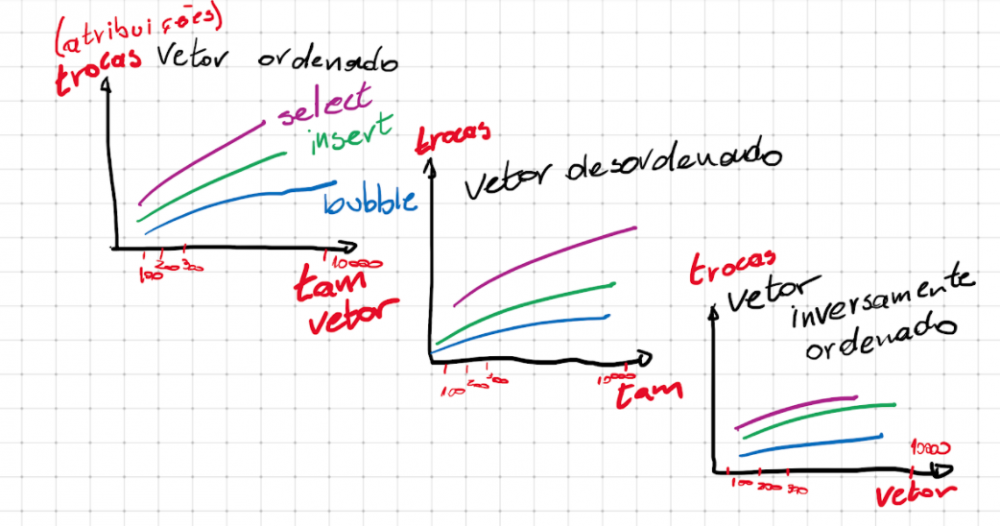 (atribuições)
trocas vetor ordenado
select
insert
bubble
100 200 300 10000
tam
vetor
trocas
vetor desordenado
100 200 300 10000
tam
trocas
vetor inversamente
ordenado
100 200 300 10000
vetor